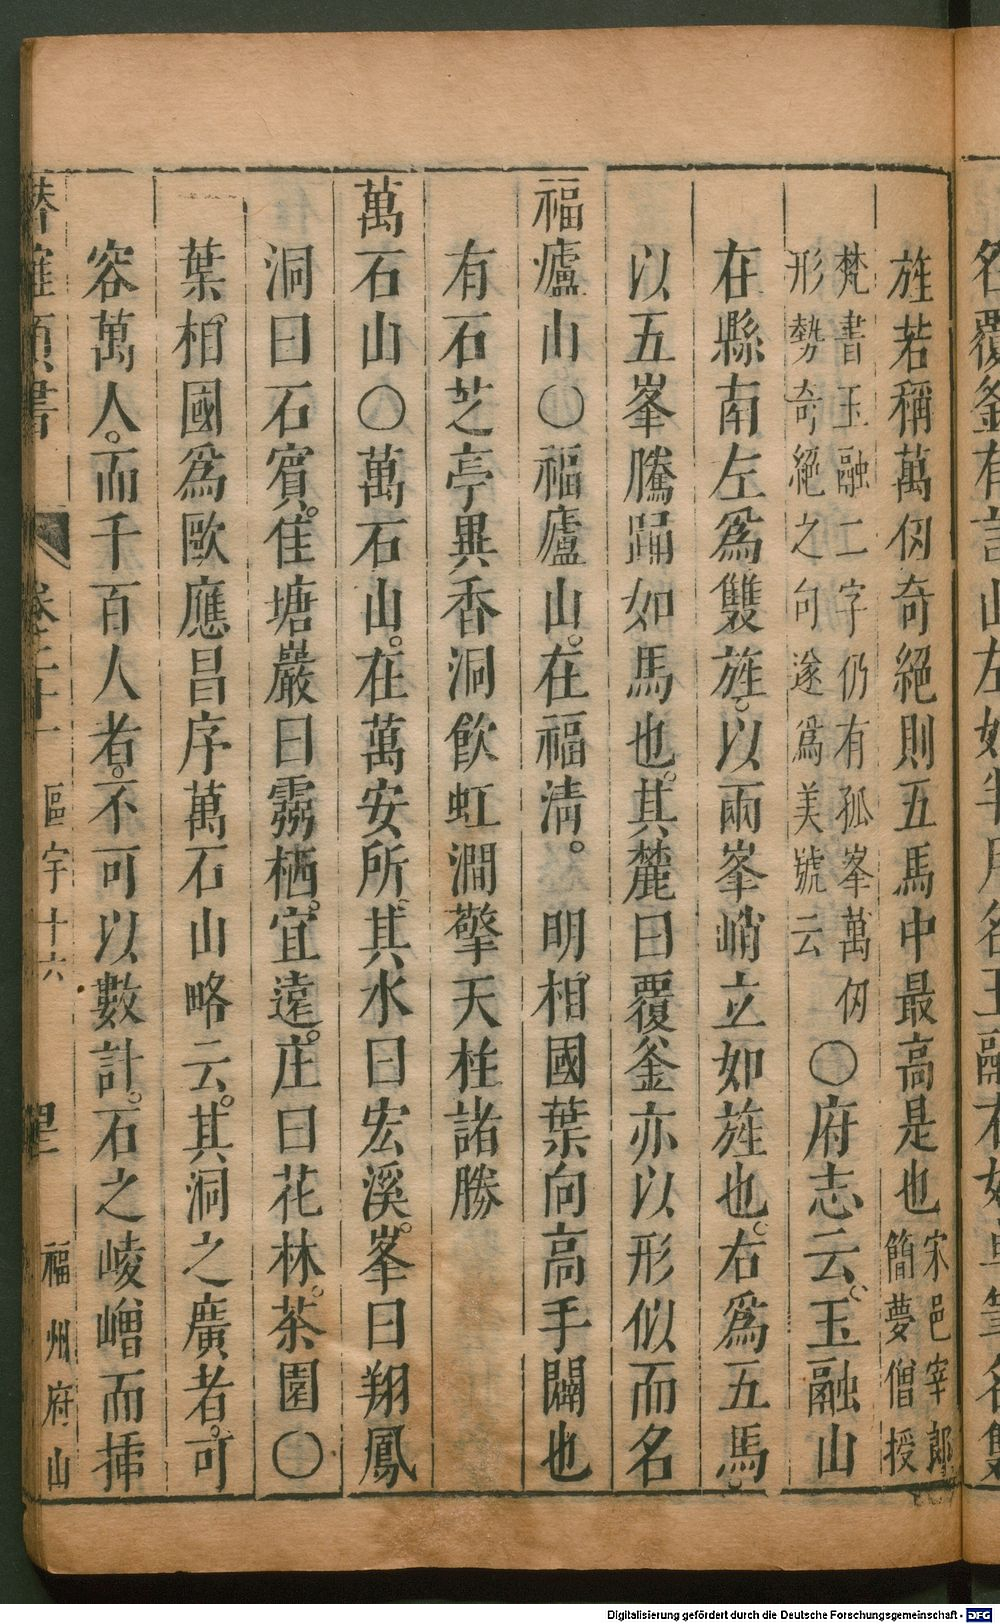 旌若稱萬仞奇絕則五馬中最高是也宋邑宰郎簡夢僧授
梵書玉融二字仍有孤峯萬仞形勢奇絕之句遂爲美號云〇府志云。玉融山
在縣南左爲雙旌。以兩峯峭立如旌也。右爲五馬。
以五峯騰踊如馬也。其麓曰覆釜亦以形似而名
福廬山〇福廬山。在福清。明相國葉向高手闢也
有石芝亭異香洞飲虹澗擎天柱諸勝
萬石山〇萬石山。在萬安所。其水曰宏溪。峯曰翔鳳
洞曰石賓。隹塘巖曰霧栖。宜遠。庄曰花林。茶園〇
葉相國爲歐應昌序萬石山略云。其洞之廣者。可
容萬人。而千百人者。不可以數計。石之崚嶒而揷
潛確類書 卷二十一 區宇十六 星 福州府山
Digitalisierung gefördert durch die Deutsche Forschungsgemeinschaft - DFG